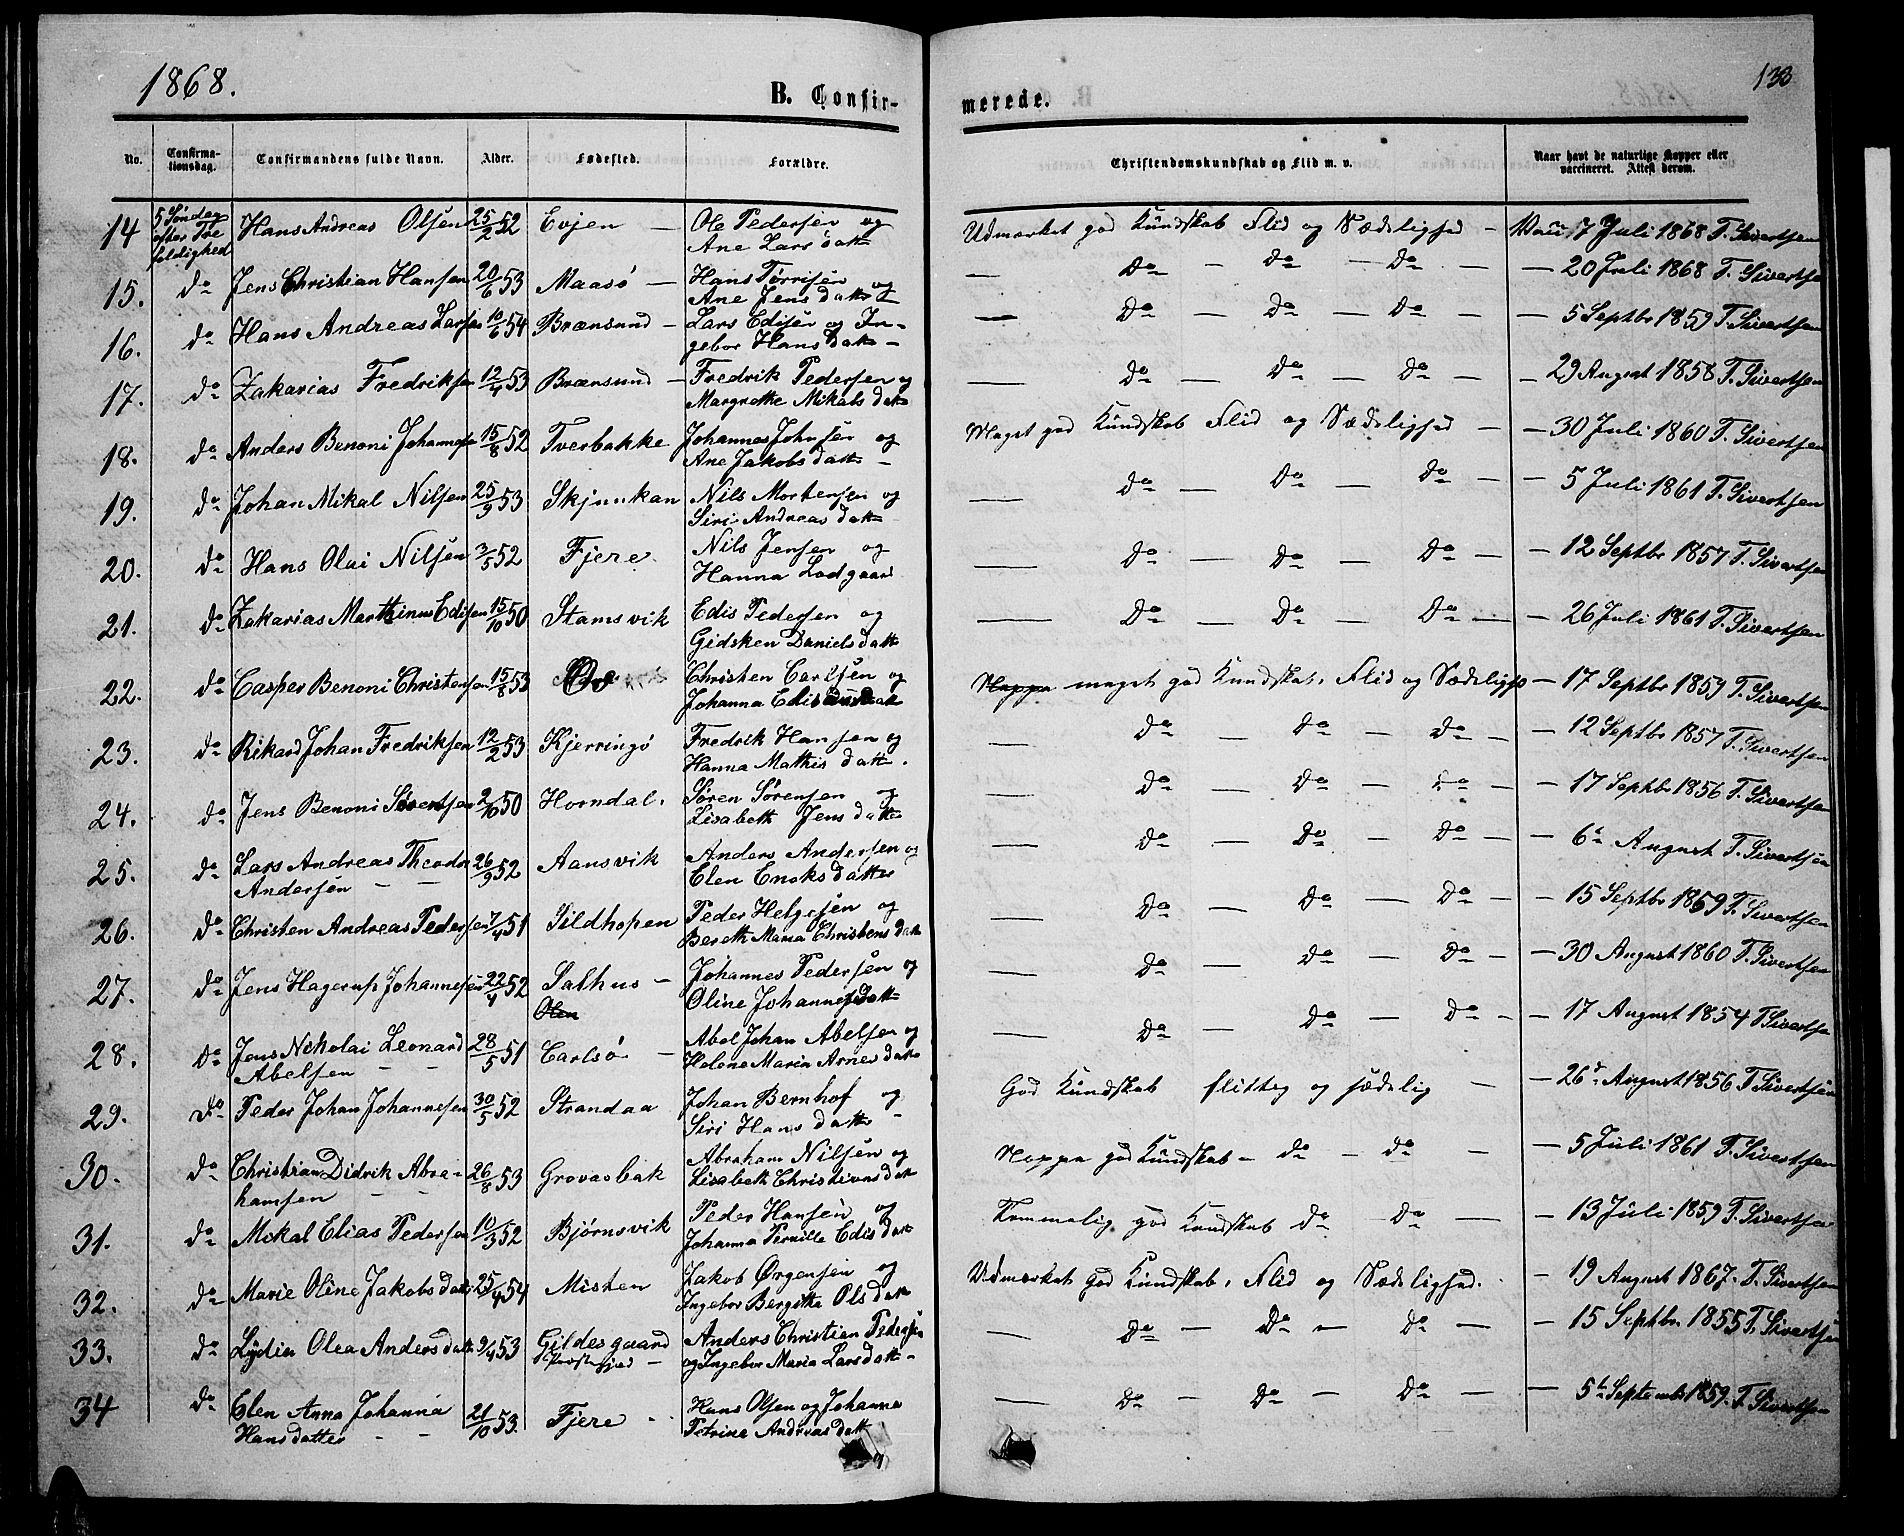 1868.
B. Confir-
merede.
132
No.
Confirma-
tionsdag.
Confirmandens fulde Navn.
Alder.
Fødested.
Forældre.
Christendomskundskab og Flid m. v.
Naar havt de naturlige Kopper eller
vaccineret. Attest derom.
14 5 Søndag efter Trefoldighed Hans Andreas Olsen 25/2 52 Evjen — Ole Pedersen og Ane Larsdatt Udmærket god Kundskab Flid og Sædelighed — 7 Juli 1868 T. Sivertsen
15. do Jens Christian Hansen 20/6 53 Maasø — Hans Tørrisen og Ane Jensdatt — do — do — do — 20 Juli 1868 T. Sivertsen
16. do Hans Andreas Larsen 10/6 54 Brænsund — Lars Edisen og Ingebor Hansdatt — do — do — do — 5 Septbr 1859 T. Sivertsen
17. do Zakarias Fredriksen 12/4 53 Brænsund — Fredrik Pedersen og Margrethe Mikalsdatt — do — do — do — 29 August 1858 T. Sivertsen
18. do Anders Benoni Johannesen 15/8 52 Tverbakke Johannes Johnsen og Ane Jakobsdatt — Meget god Kundskab Flid og Sædelighed — 30 Juli 1860 T. Sivertsen
19. do Johan Mikal Nilsen 25/9 53 Skjunkan Nils Mortensen og Siri Andreasdatt — do — do — do — 5 Juli 1861 T. Sivertsen
20. do Hans Olai Nilsen 3/5 52 Fjere Nils Jensen og Hanna Lodgaard — do — do — do — 12 Septbr 1857 T. Sivertsen
21. do Zakarias Marthinus Edisen 15/10 50 Stamsvik Edis Pedersen og Gidsken Danielsdatt — do — do — do — 26 Juli 1861 T. Sivertsen
22. do Casper Benoni Christensen 15/8 53 Christen Carlsen og Johanna Edisdatt meget god Kundskab, Flid og Sædelighed — 17 Septbr 1859 T. Sivertsen
23. do Rikard Johan Fredriksen 12/2 53 Kjerringø Fredrik Hansen og Hanna Mathisdatt. — do — do — do — 12 Septbr 1857 T. Sivertsen
24. do Jens Benoni Sørensen 2/10 50 Horndal. Søren Sørensen og Lisabeth Jensdatt — do — do — do — 17 Septbr 1856 T. Sivertsen
25. do Lars Andreas Theodor Andersen — 26/9 52 Aansvik Anders Andersen og Elen Enoksdatter — do — do — do — 6te August T. Sivertsen
26. do Christen Andreas Pedersen 7/4 51 Sildhopen Peder Helgesen og Bereth Maria Christensdatt — do — do — do — 15 Septbr 1859 T. Sivertsen
27. do Jens Hagerup Johannesen 22/4 52 Salhus — Olen Johannes Pedersen og Oline Johannesdatt — do — do — do — 30 August 1860 T. Sivertsen
28. do Jens Nikolai Leonard Abelsen — 28/5 51 Carlsø — Abel Johan Abelsen og Helene Maria Arnesdatt — do — do — do — 17 August 1854 T Sivertsen
29. do Peder Johan Johannesen 30/5 52 Strandaa Johan Bernhof og Siri Hansdatt — God Kundskab flittig og sædelig — 26de August 1856 T Sivertsen
30. do Christian Didrik Abrahamsen — 26/8 53 Grovasbak Abraham Nilsen og Lisabeth Christiansdatt Noppa god Kundskab — do — do — 5 Juli 1861 T. Sivertsen
31. do Mikal Elias Pedersen 10/3 52 Bjørnsvik Peder Hansen og Johanna Pernille Edisdatt Temmelig god Kundskab do — do — 13 Juli 1859 T. Sivertsen
32. do Marie Oline Jakobsdatt 25/4 54 Misten Jakob Ørgensen og Ingebor Bergitta Olsdatt Udmærket god Kundskab, Flid og Sædelighed. — 19 August 1867. T. Sivertsen
33. do Lydia Olea Andersdatt 9/4 53 Gildesgaard — Anders Christian Pedersen og Ingebor Maria Larsdatt — do — do — do — 15 Septbr 1855 T. Sivertsen
34 do Elen Anna Johanna Hansdatter — 21/10 53. Fjere Hans Olsen og Johanna Petrina Andreasdatt — do — do — do — 5te September 1859. T. Sivertsen